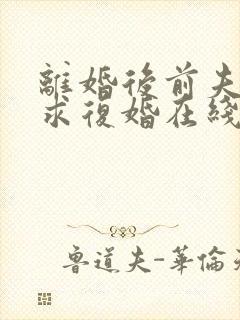 離婚後前夫
求復婚在綫
魯道夫-華倫